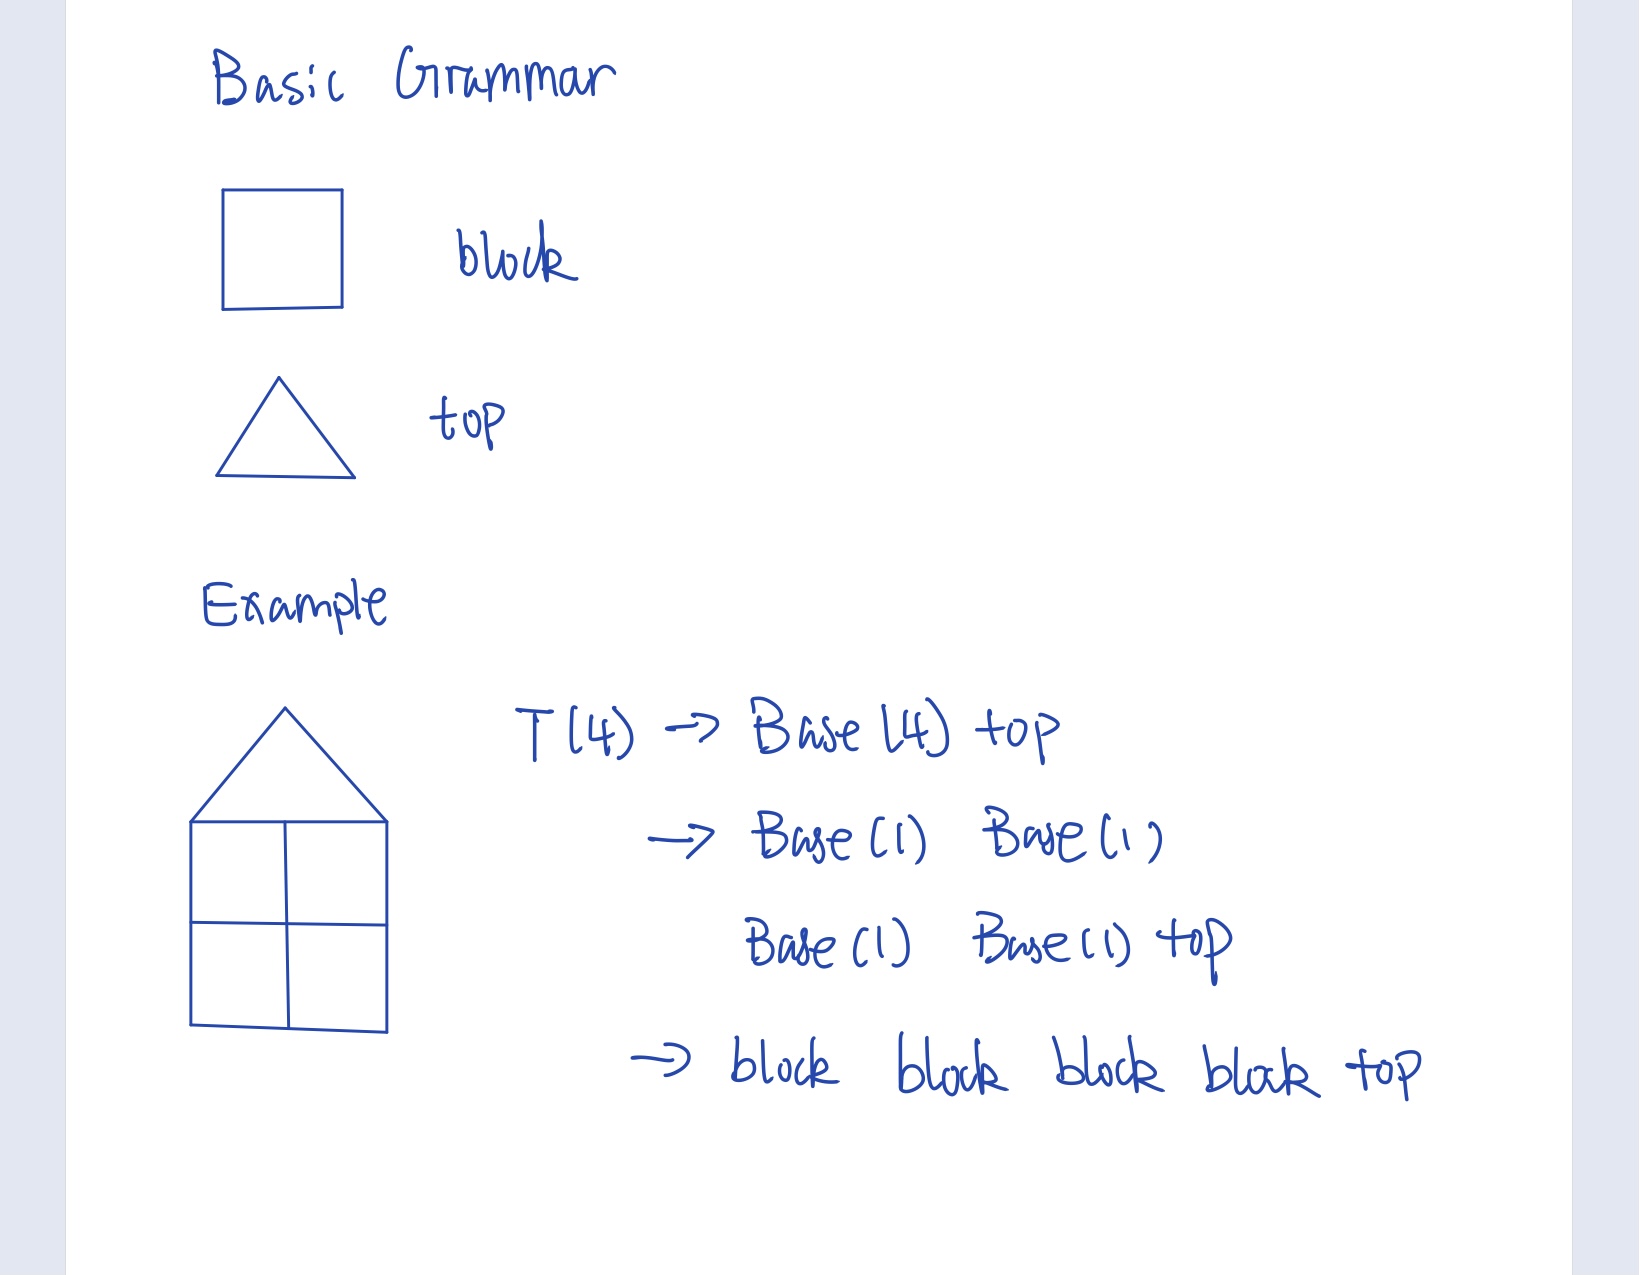 Basic Grammar
block
top
Example
T(4) → Base(4) top
→ Base(1) Base(1)
Base(1) Base(1) top
→ block block block block top